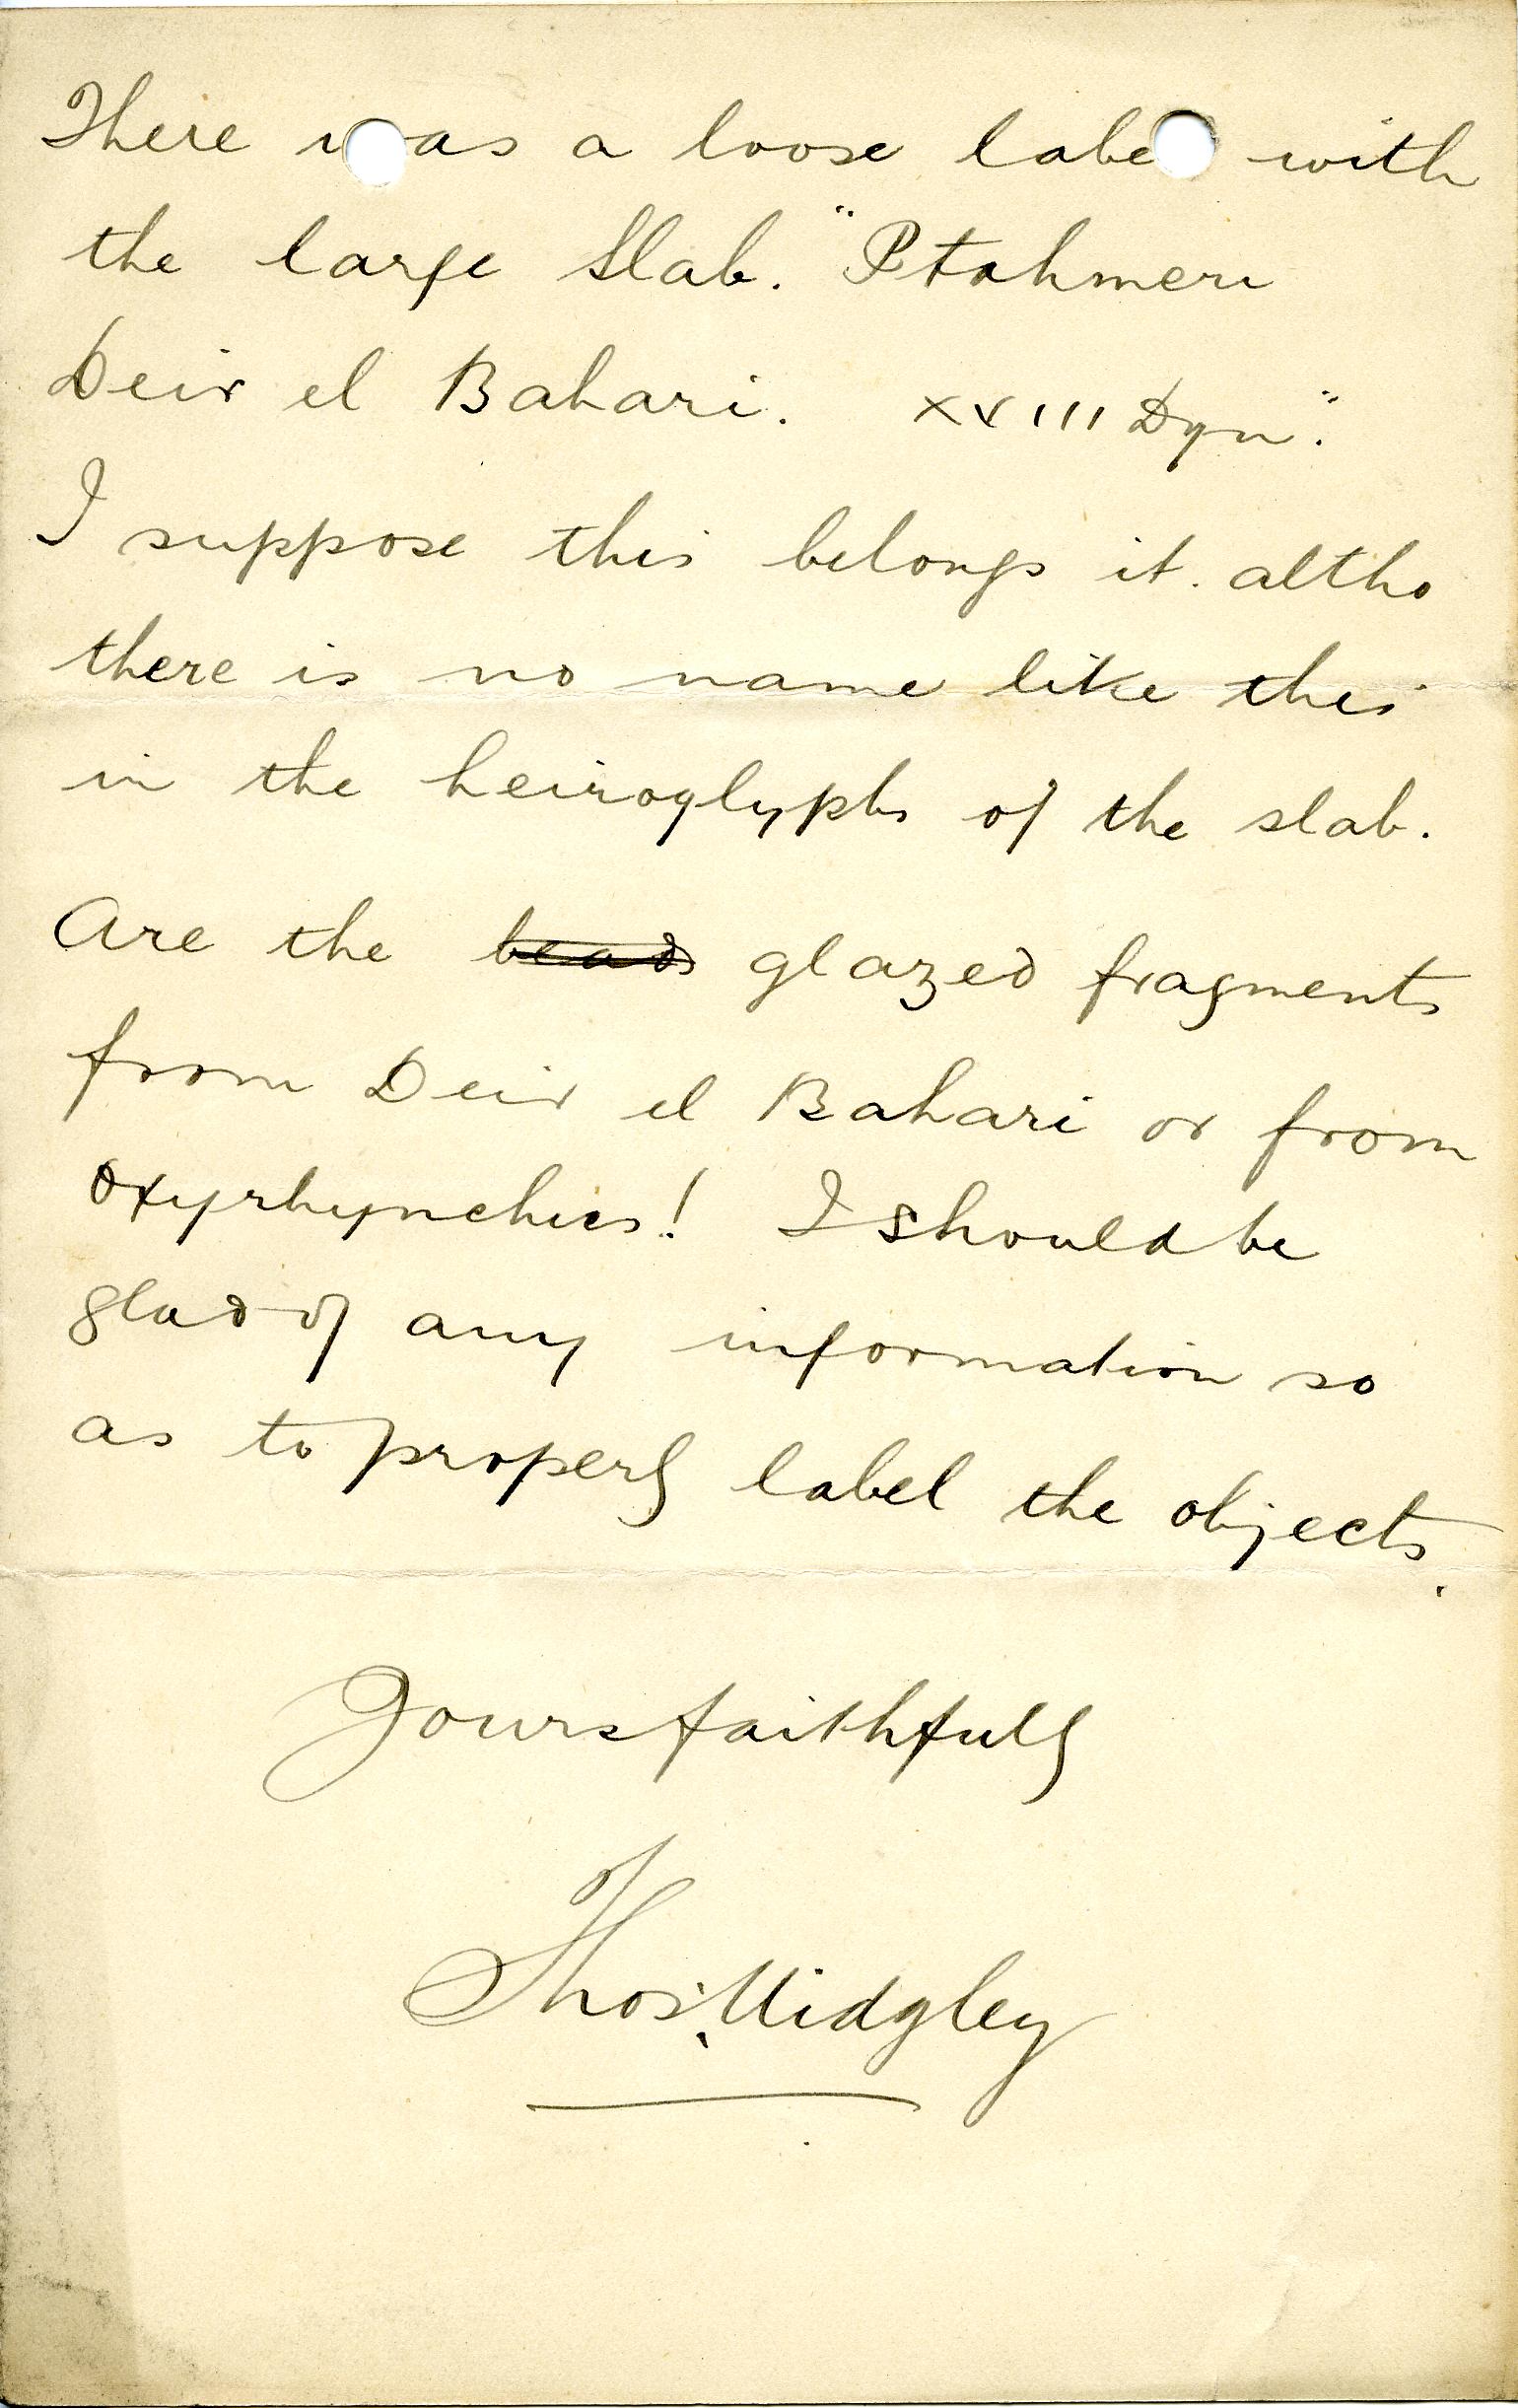 There was a loose label with
the large Slab. "Ptahmeri
Deir el Bahari. XXIII Dyn".
I suppose this belongs it. altho
there is no name like this
in the heiroglyphs of the slab.
Are the beads glazed fragments
from Deir el Bahari or from
Oxyrhynchus! I should be
glad of any information so
as to properly label the objects.
Yours faithfully
Thos. Midgley